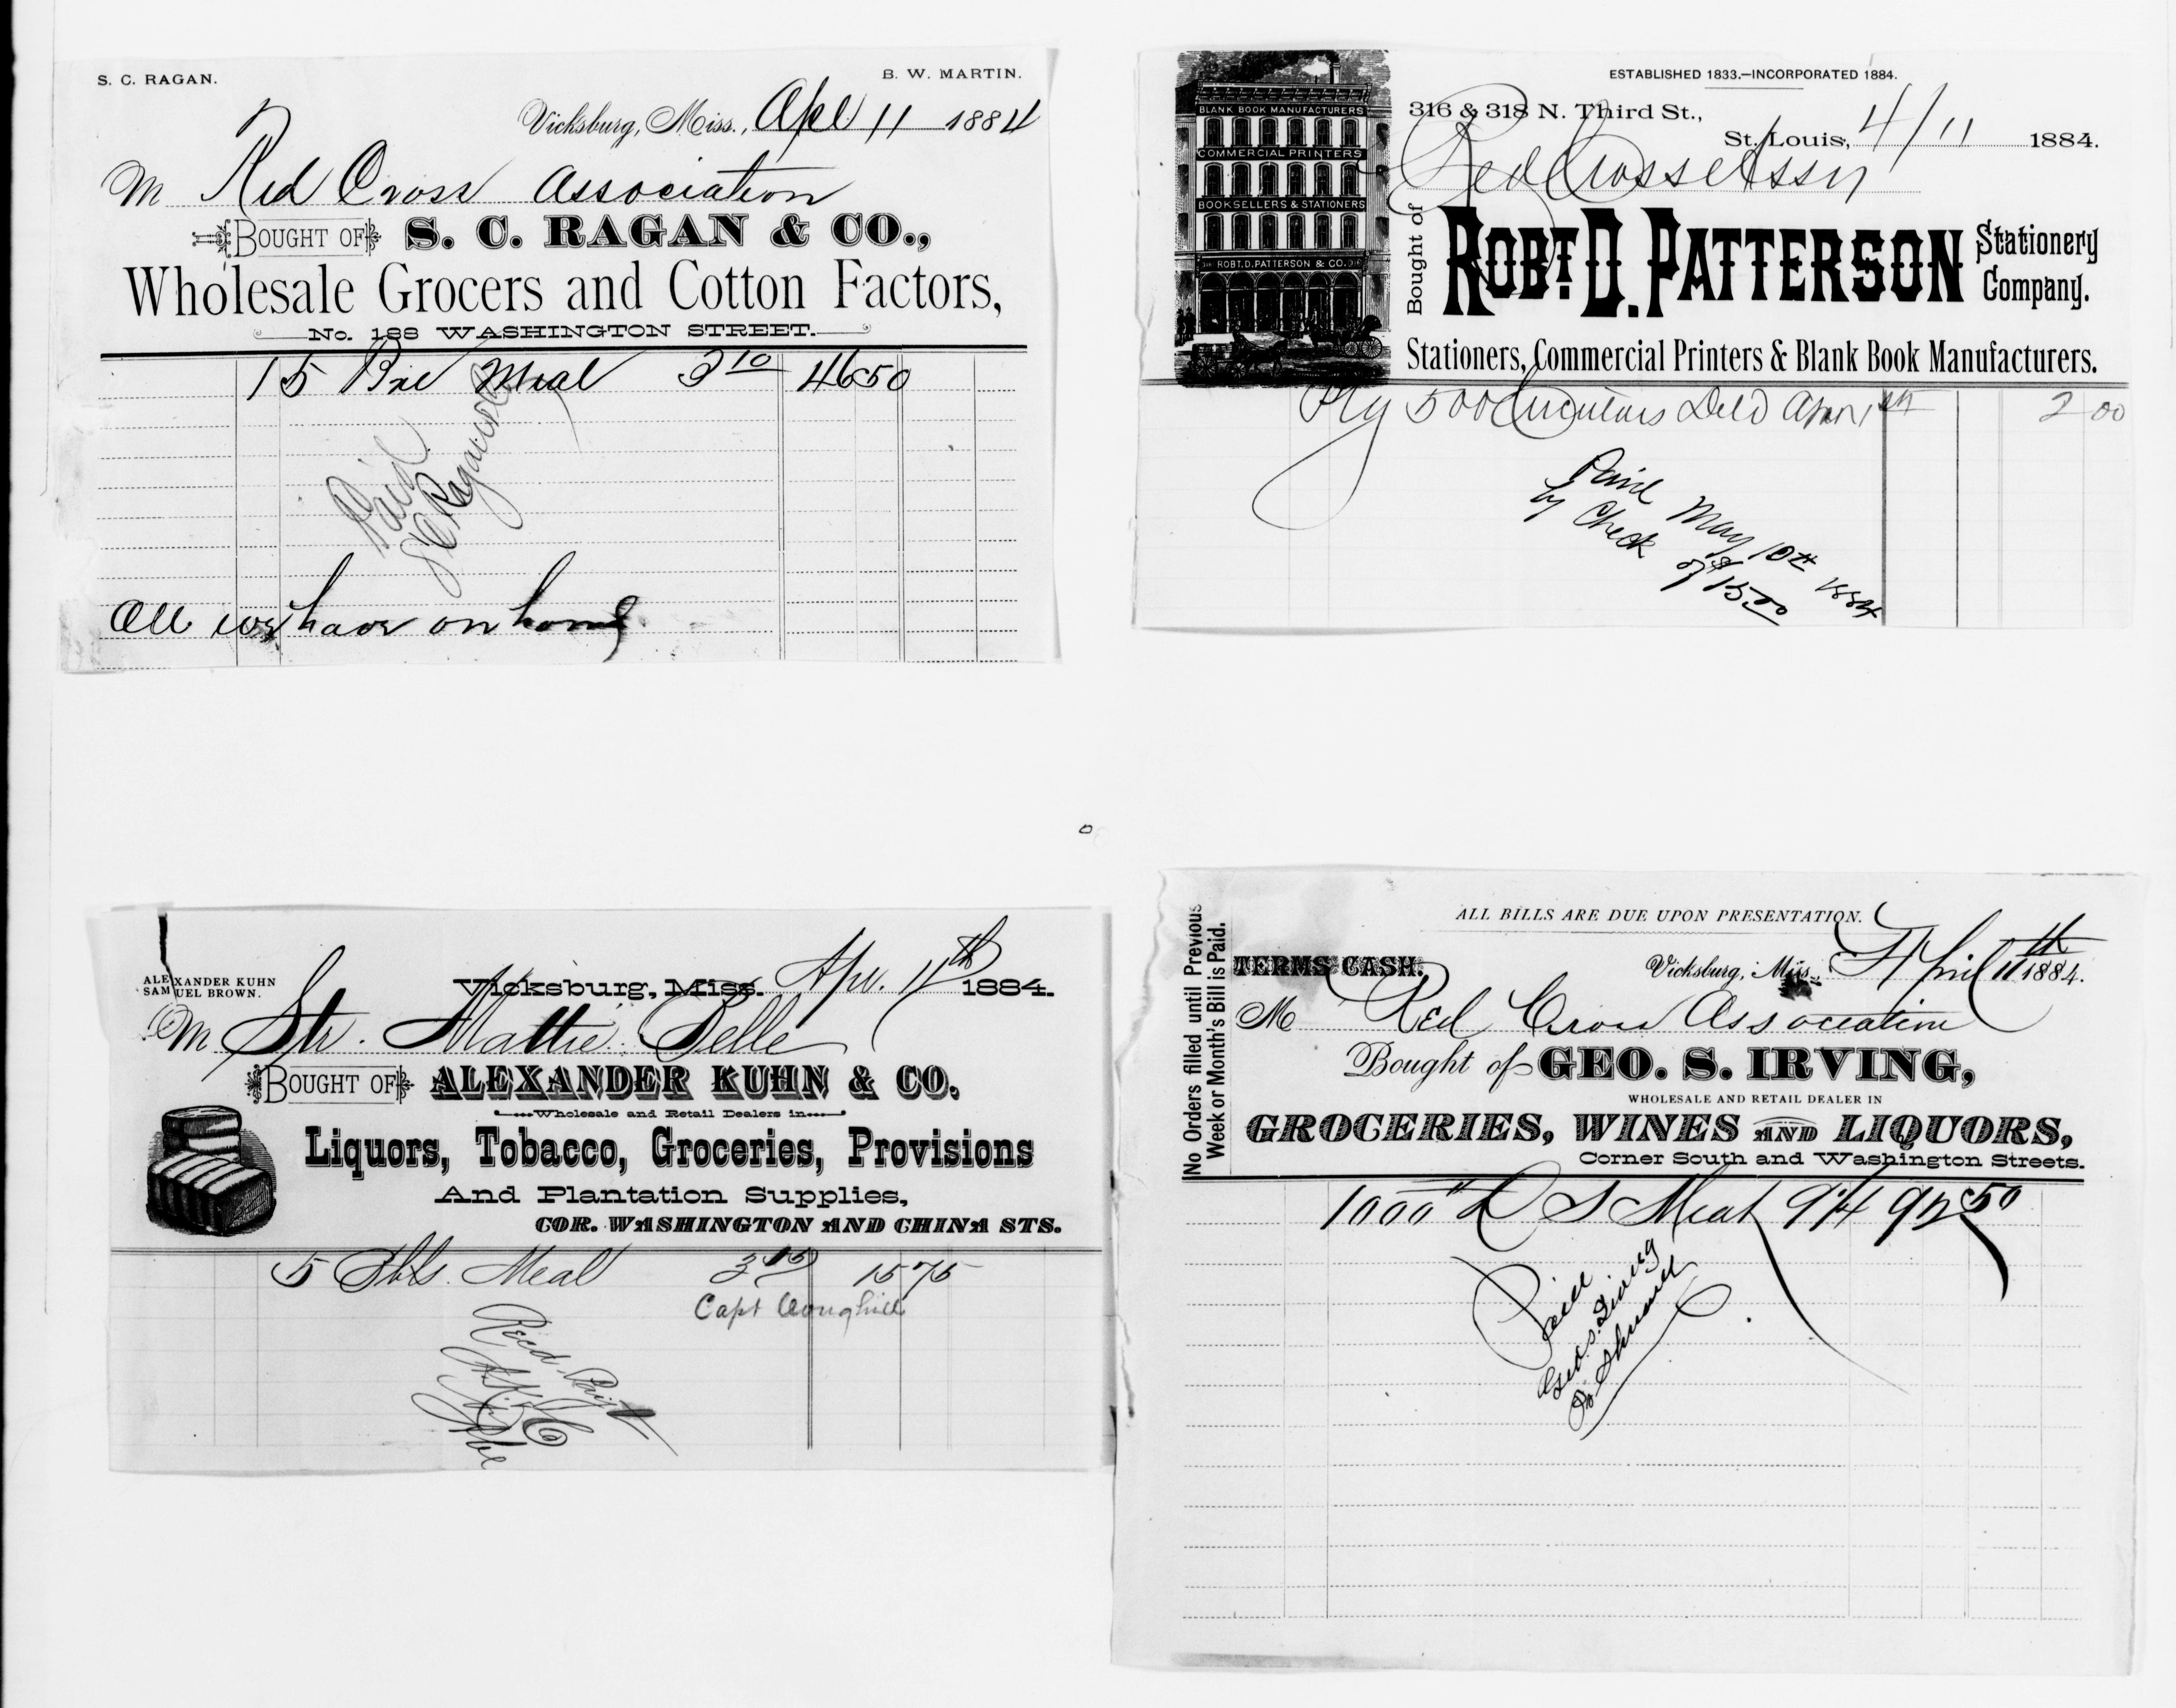 S. C. RAGAN.
B. W. MARTIN.
Vicksburg, Miss., Apl 11 1884
M Red Cross Association
BOUGHT OF S. C. RAGAN & CO.,
Wholesale Grocers and Cotton Factors,
No. 188 WASHINGTON STREET.
15 Bre Meal 3 10 46 50
Paid
All we have on hand
ESTABLISHED 1833.—INCORPORATED 1884.
316 & 318 N. Third St.,
St. Louis, 4/11 1884.
Red Cross Assn
BLANK BOOK MANUFACTURERS
COMMERCIAL PRINTERS
BOOKSELLERS & STATIONERS
ROBT. D. PATTERSON & CO.
Bought of ROBT. D. PATTERSON Stationery Company.
Stationers, Commercial Printers & Blank Book Manufacturers.
500 Circulars Deld 2 00
Paid May 10th 1884
by Check of $15 00
ALEXANDER KUHN
SAMUEL BROWN.
Vicksburg, Miss. Apr. 11th 1884.
M Str. Mattie Belle
BOUGHT OF ALEXANDER KUHN & CO.
Wholesale and Retail Dealers in
Liquors, Tobacco, Groceries, Provisions
And Plantation Supplies,
COR. WASHINGTON AND CHINA STS.
5 Bbls. Meal 3 15 15 75
Capt
Recd Payt
ALL BILLS ARE DUE UPON PRESENTATION.
No Orders filled until Previous
Week or Month's Bill is Paid.
TERMS CASH.
Vicksburg, Miss. April 11th 1884.
M Red Cross Association
Bought of GEO. S. IRVING,
WHOLESALE AND RETAIL DEALER IN
GROCERIES, WINES AND LIQUORS,
Corner South and Washington Streets.
1000 # D S Meat 9 1/4 92 50
Paid
Geo. S. Irving